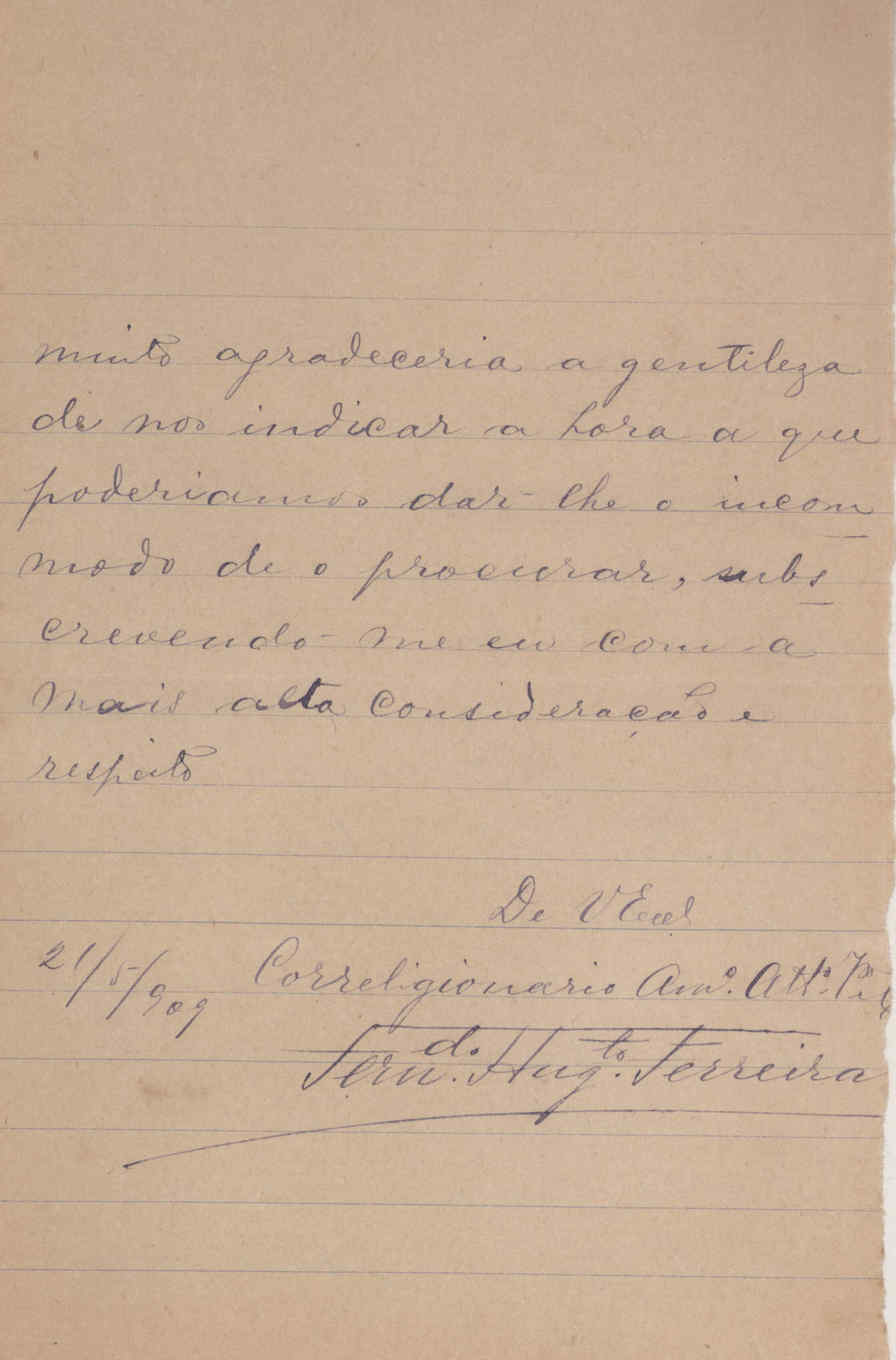 muito agradeceria a gentileza
de nos indicar a hora a que
poderiamos dar-lhe o incom
modo de o procurar, subs
crevendo-me eu com a
mais alta consideração e
respeito
De VExcª
21/5/909 Correligionario Amº. Attº.
Ferndo. Augto. Ferreira